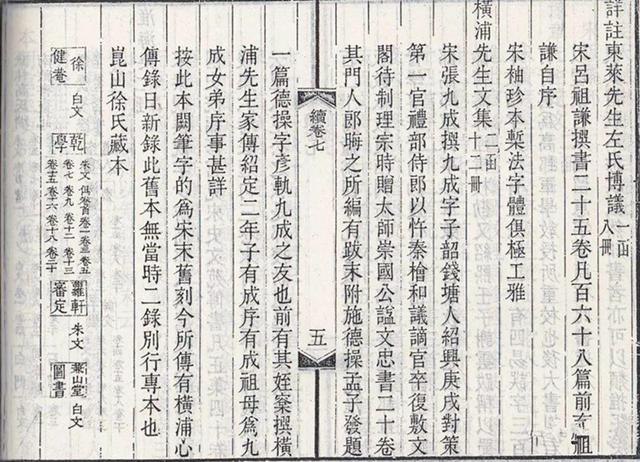 詳註東萊先生左氏博議 一函八冊
宋呂祖謙撰書二十五卷凡百六十八篇前有祖
謙自序
宋袖珍本槧法字體俱極工雅
橫浦先生文集 二函十二冊
宋張九成撰九成字子韶錢塘人紹興庚戌對策
第一官禮部侍郎以忤秦檜和議謫官卒復敷文
閣待制理宗時贈太師崇國公諡文忠書二十卷
其門人郎晦之所編有跋末附施德操孟子發題
續卷七
五
一篇德操字彥軌九成之友也前有其姪寀撰橫
浦先生家傳紹定二年子有成序有成祖母為九
成女弟序事甚詳
按此本闕筆字的為宋末舊刻今所傳有橫浦心
傳錄日新錄此舊本無當時二錄別行專本也
崑山徐氏藏本
徐健菴 白文 乾學 朱文 俱卷首卷一卷三卷五卷七卷九卷十二卷十三卷十五卷十六卷十八卷二十 蘿軒審定 朱文 山堂圖書 白文